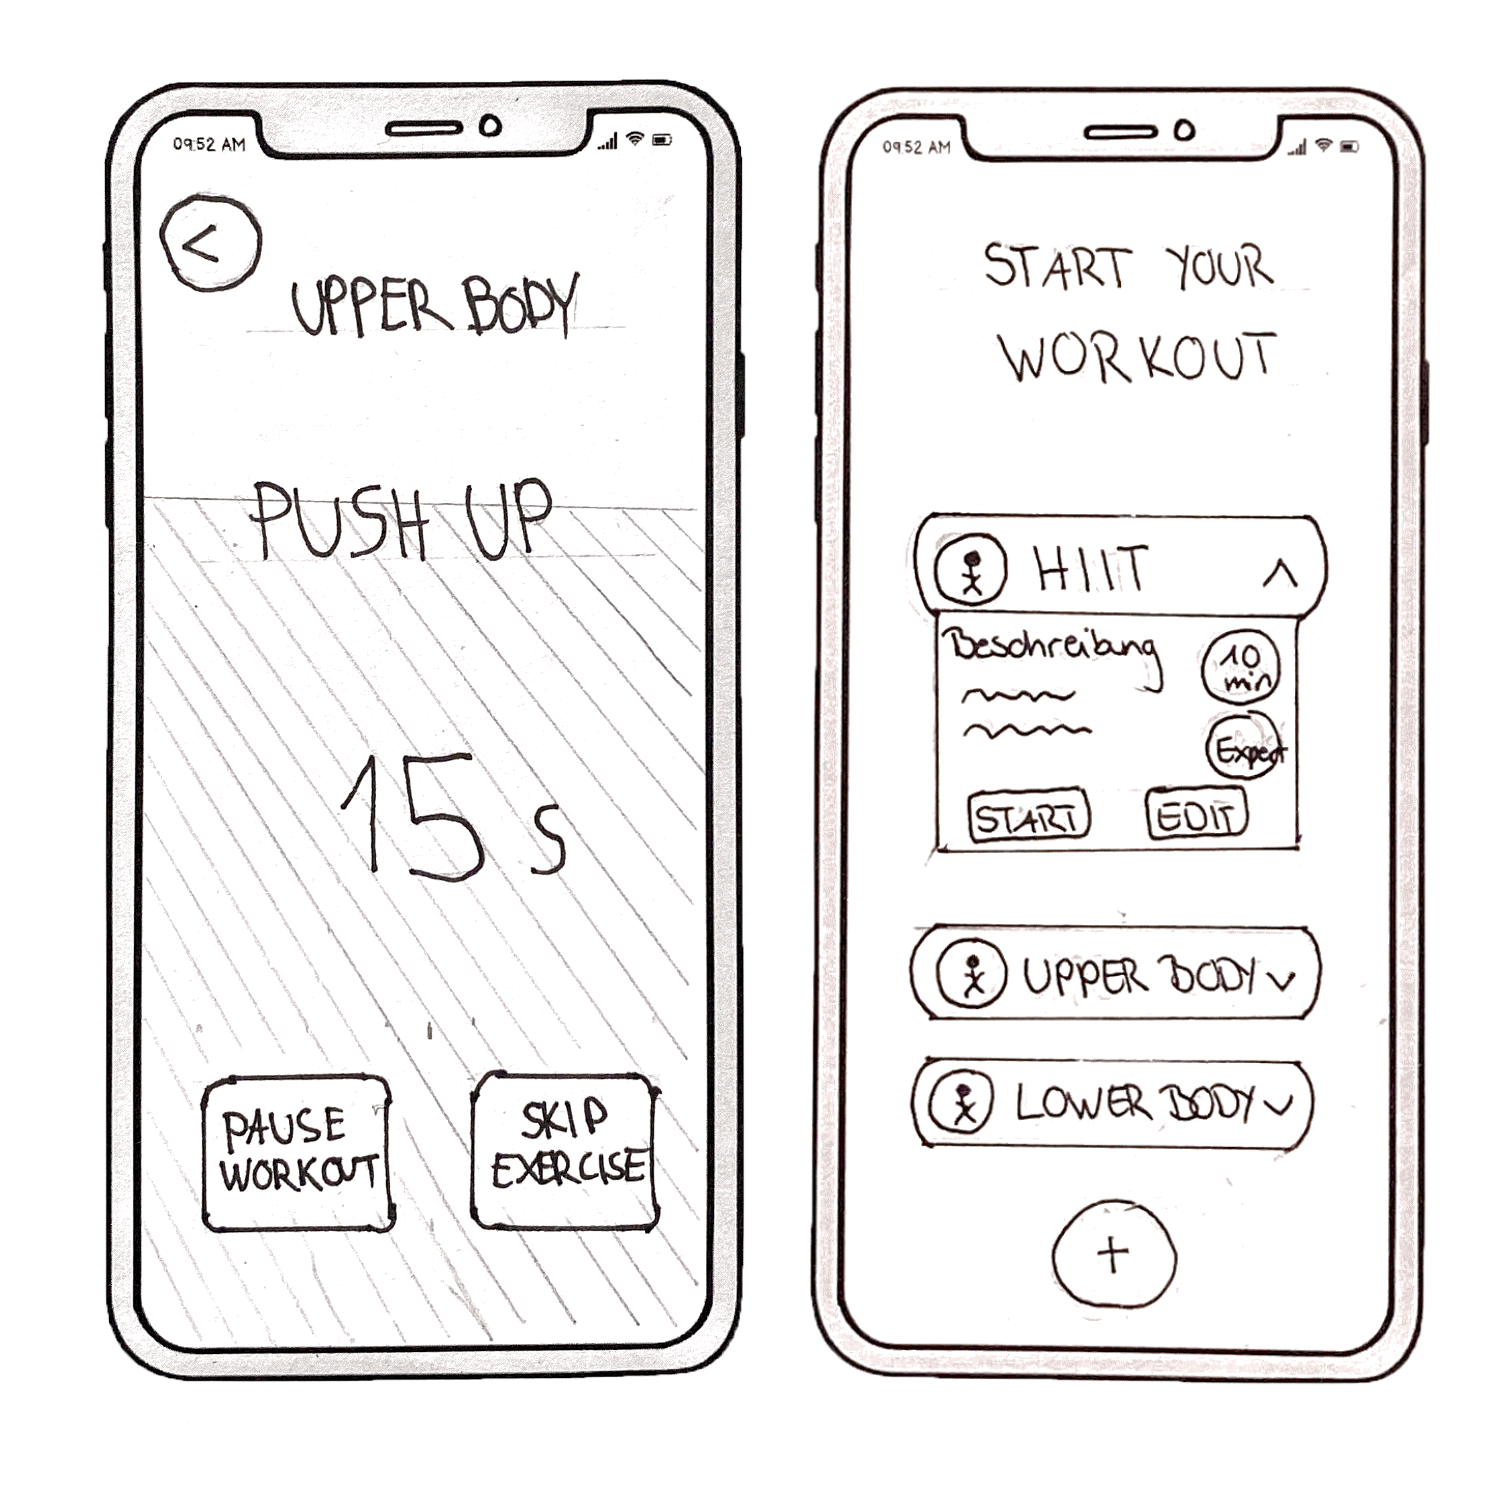 09:52 AM
<
UPPER BODY
PUSH UP
15 s
PAUSE
WORKOUT
SKIP
EXERCISE
09:52 AM
START YOUR
WORKOUT
HIIT
Beschreibung
10
min
Expert
START
EDIT
UPPER BODY
LOWER BODY
+